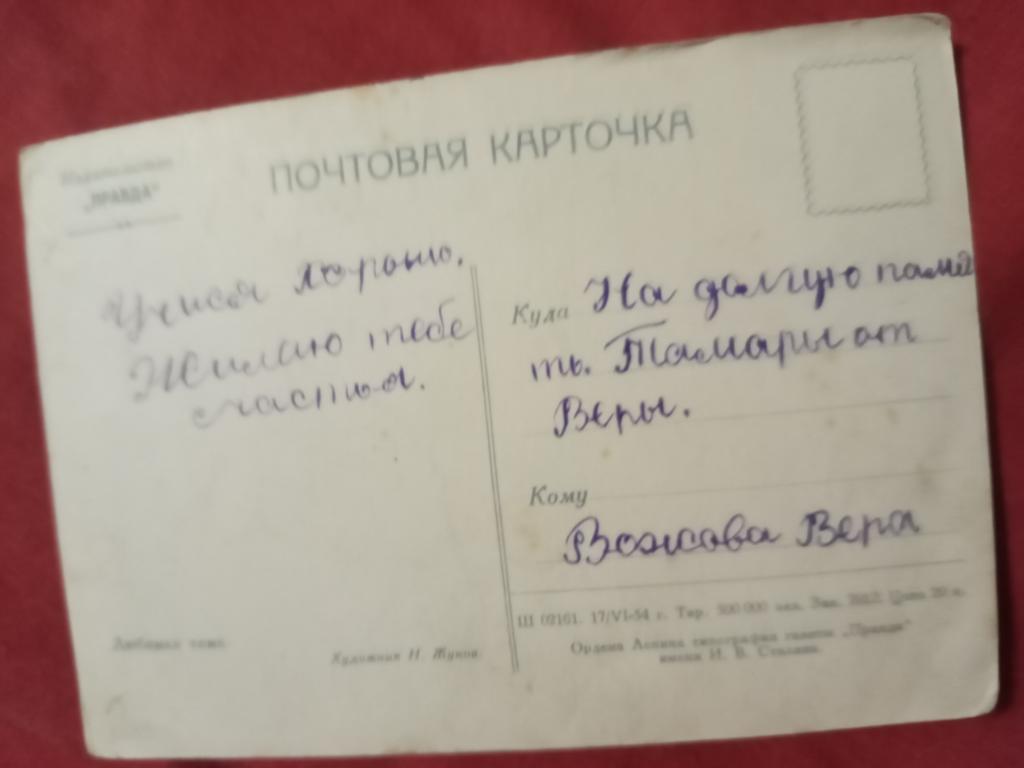 Издательство
„ПРАВДА"
ПОЧТОВАЯ КАРТОЧКА
Учись хорошо.
Желаю тебе
счастья.
Куда На долгую памя
ть. Тамары от
Веры.
Кому
Вожова Вера
Ш 02161. 17/VI-54 г. Тир. 500 000 экз. Зак. Цена 20 к.
Ордена Ленина типография газеты „Правда"
имени И. В. Сталина.
Художник Н. Жуков